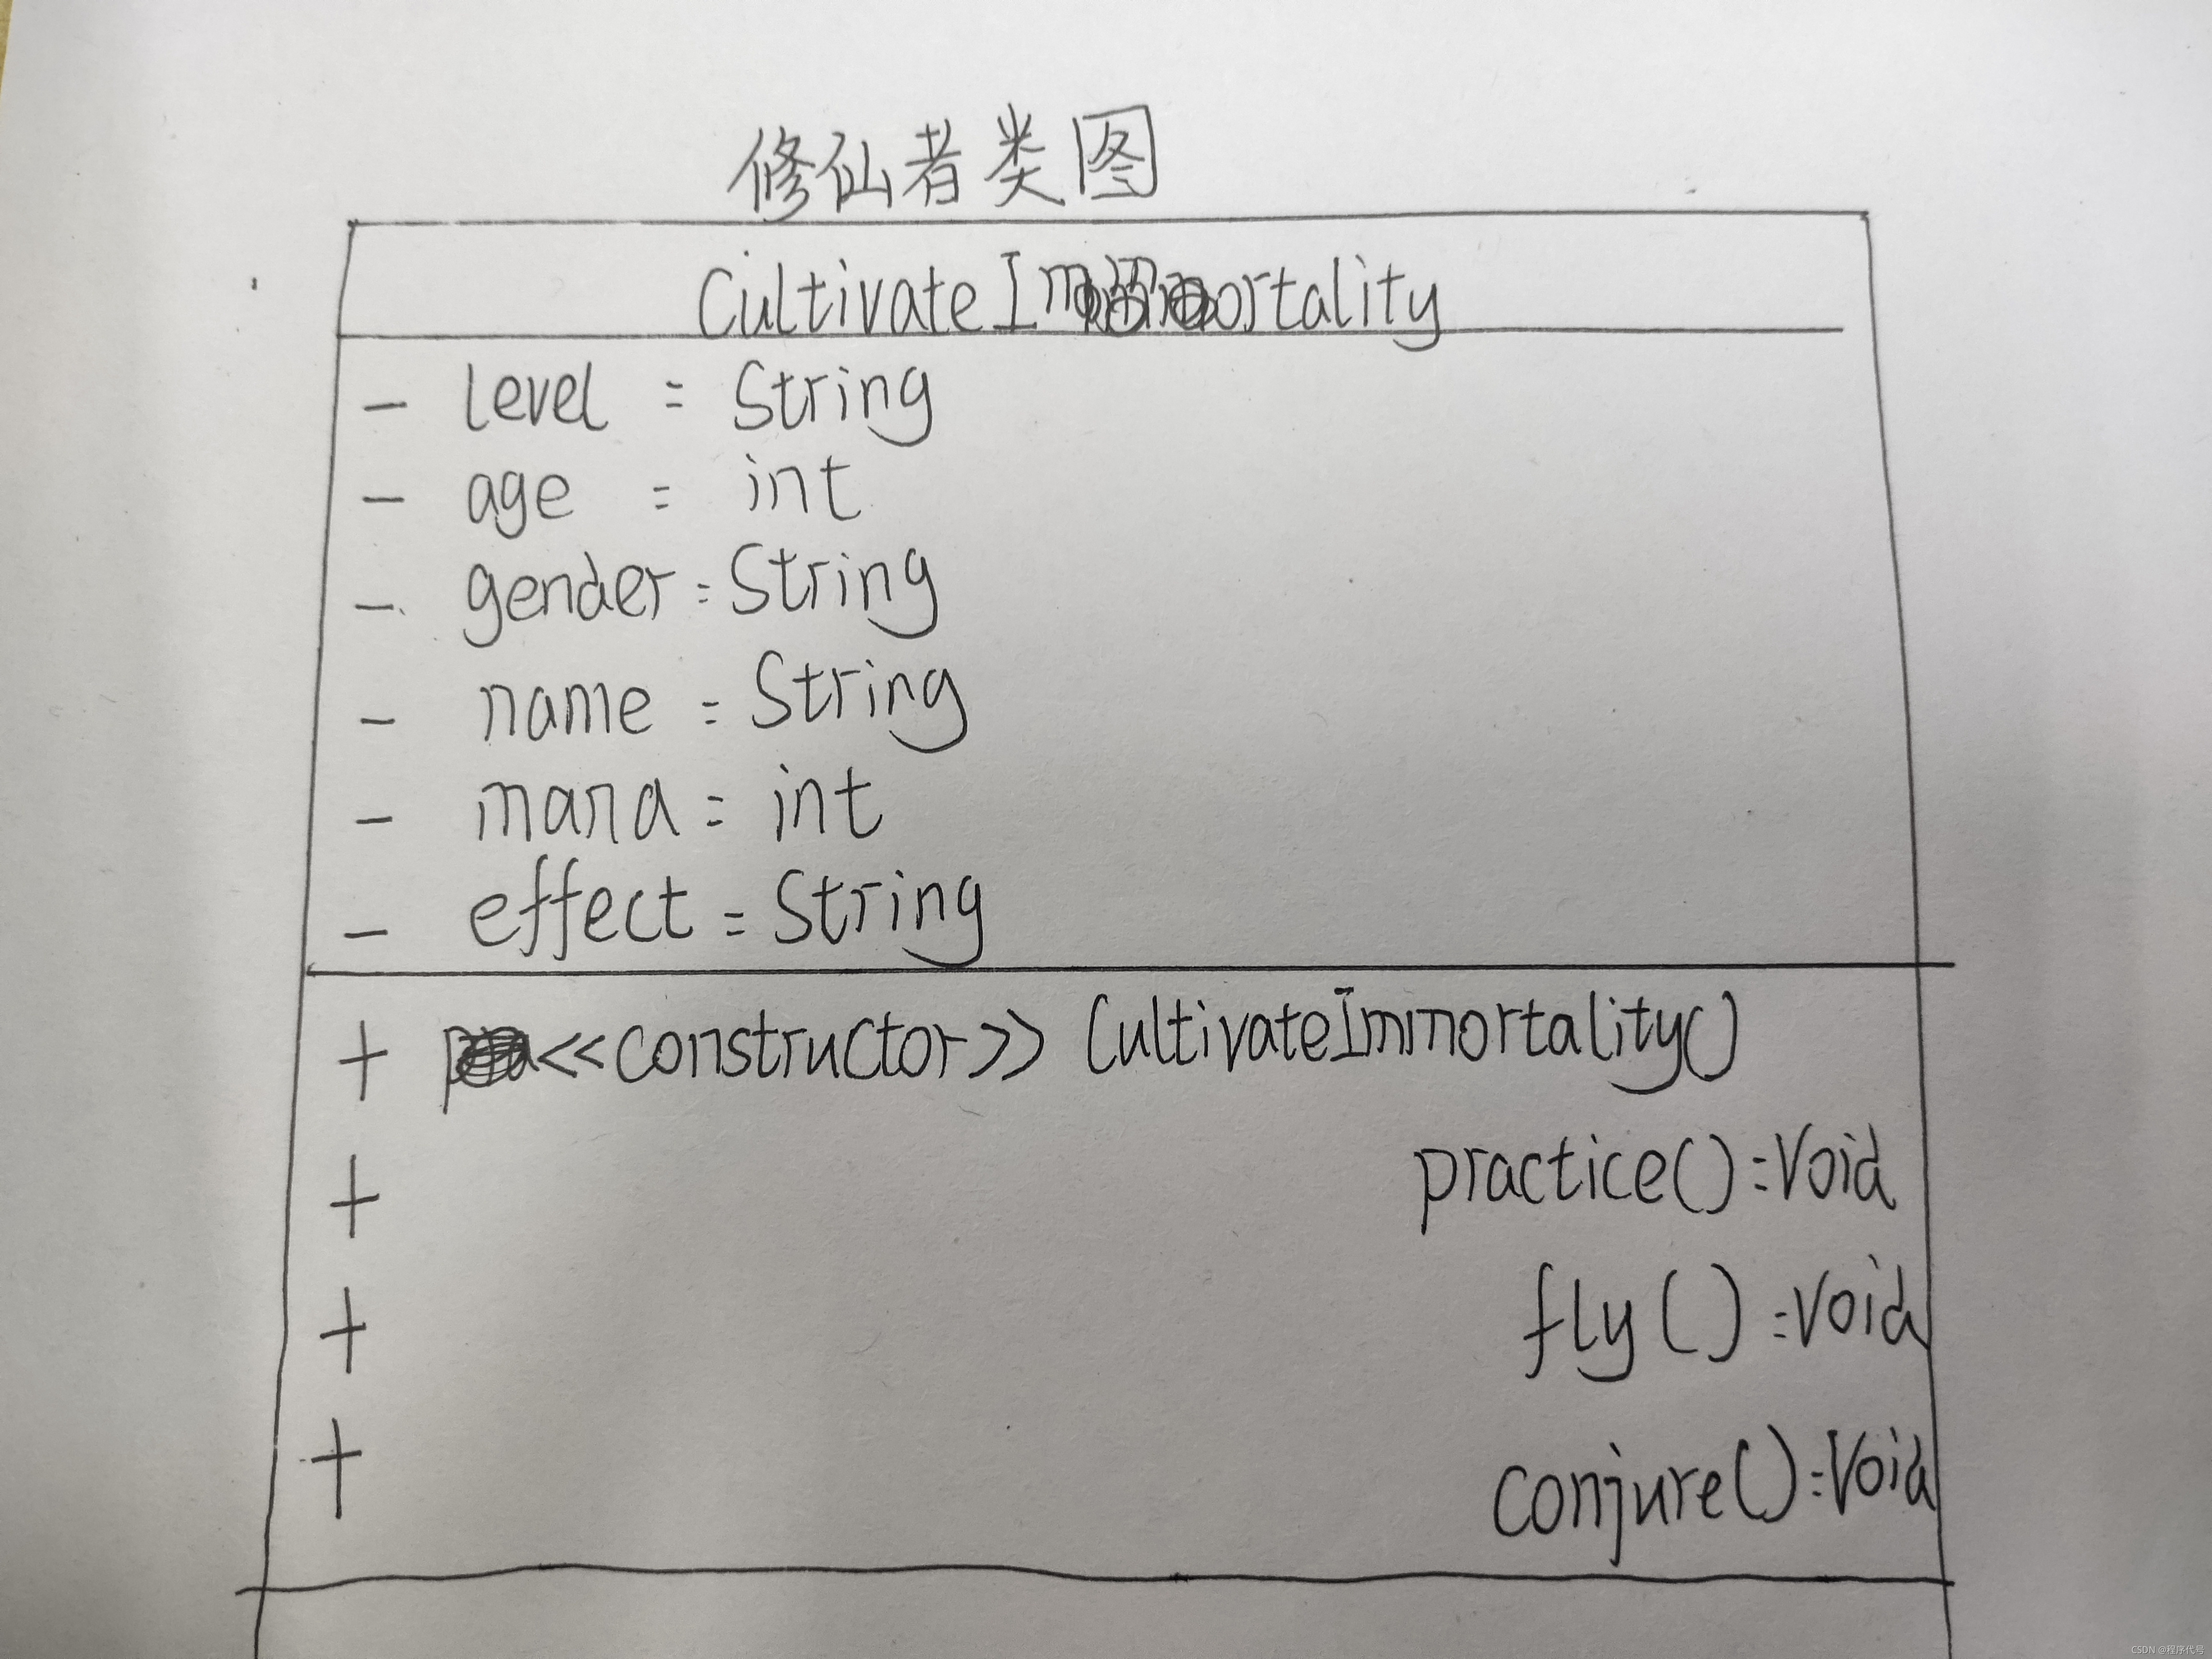 修仙者类图
CultivateImmortality
- level = String
- age = int
- gender = String
- name = String
- mana = int
- effect = String
+ <<constructor>> CultivateImmortality()
+ practice() = Void
+ fly() = Void
+ conjure() = Void
CSDN @程序代号